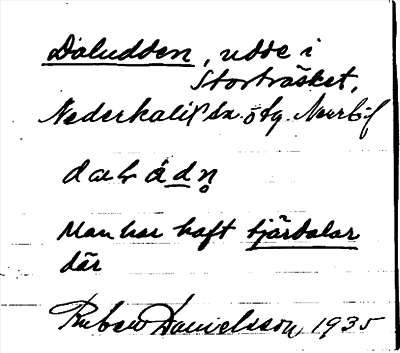 Daludden, udde i
Storträsket,
Nederkalix sn. o tg. Norrb. l
Man har haft tjärdalar
där
Ruben Danielsson 1935